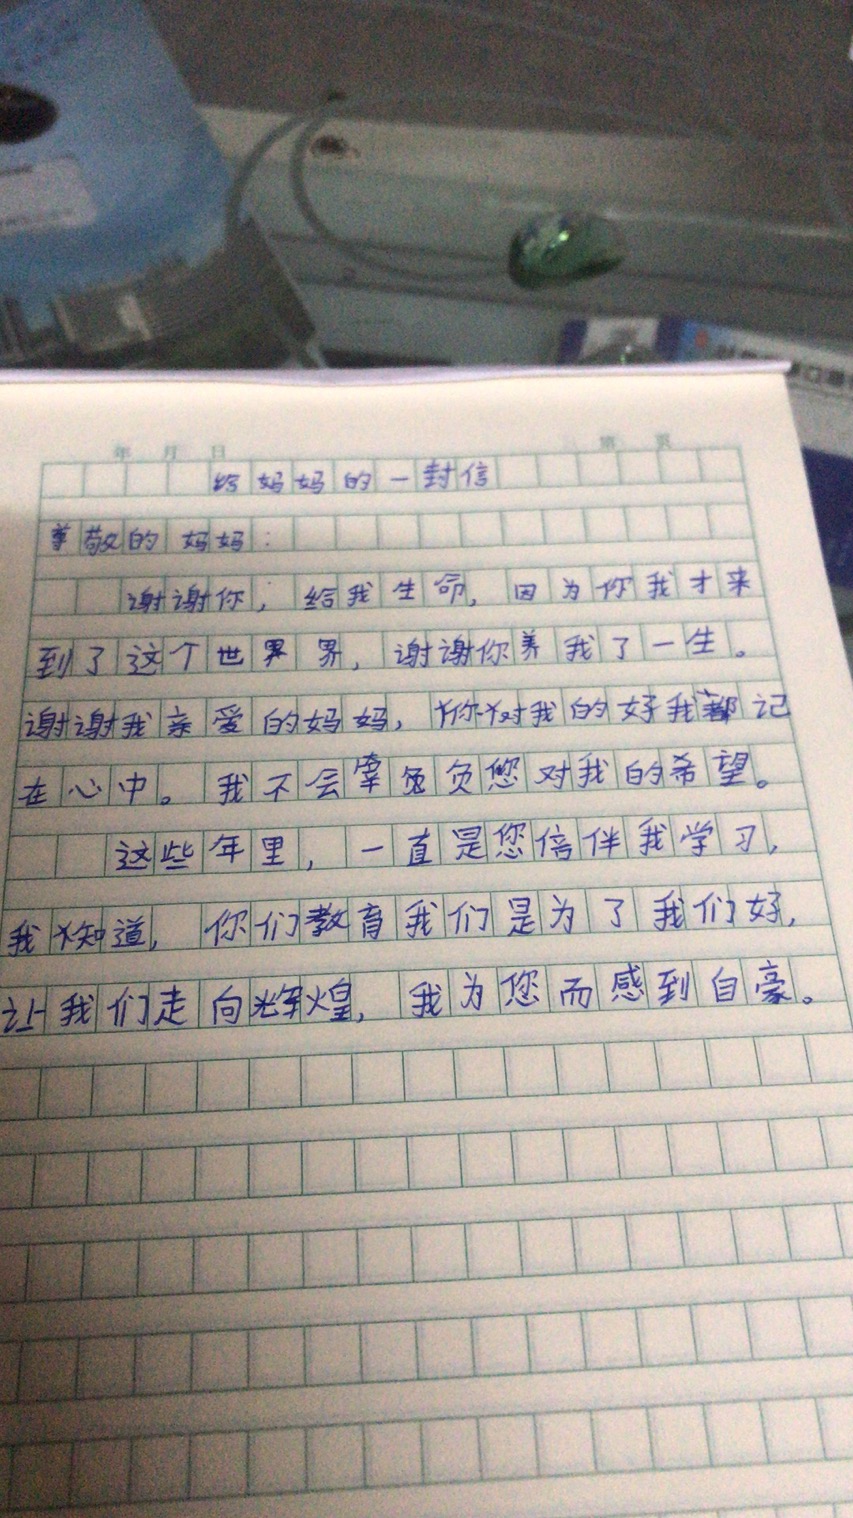 年 月 日 第 页
给妈妈的一封信
尊敬的妈妈:
谢谢你,给我生命,因为你我才来
到了这个世界界,谢谢你养我了一生。
谢谢我亲爱的妈妈,你对我的好我都记
在心中。我不会辜负您对我的希望。
这些年里,一直是您倍伴我学习,
我知道,你们教育我们是为了我们好,
让我们走向辉煌,我为您而感到自豪。